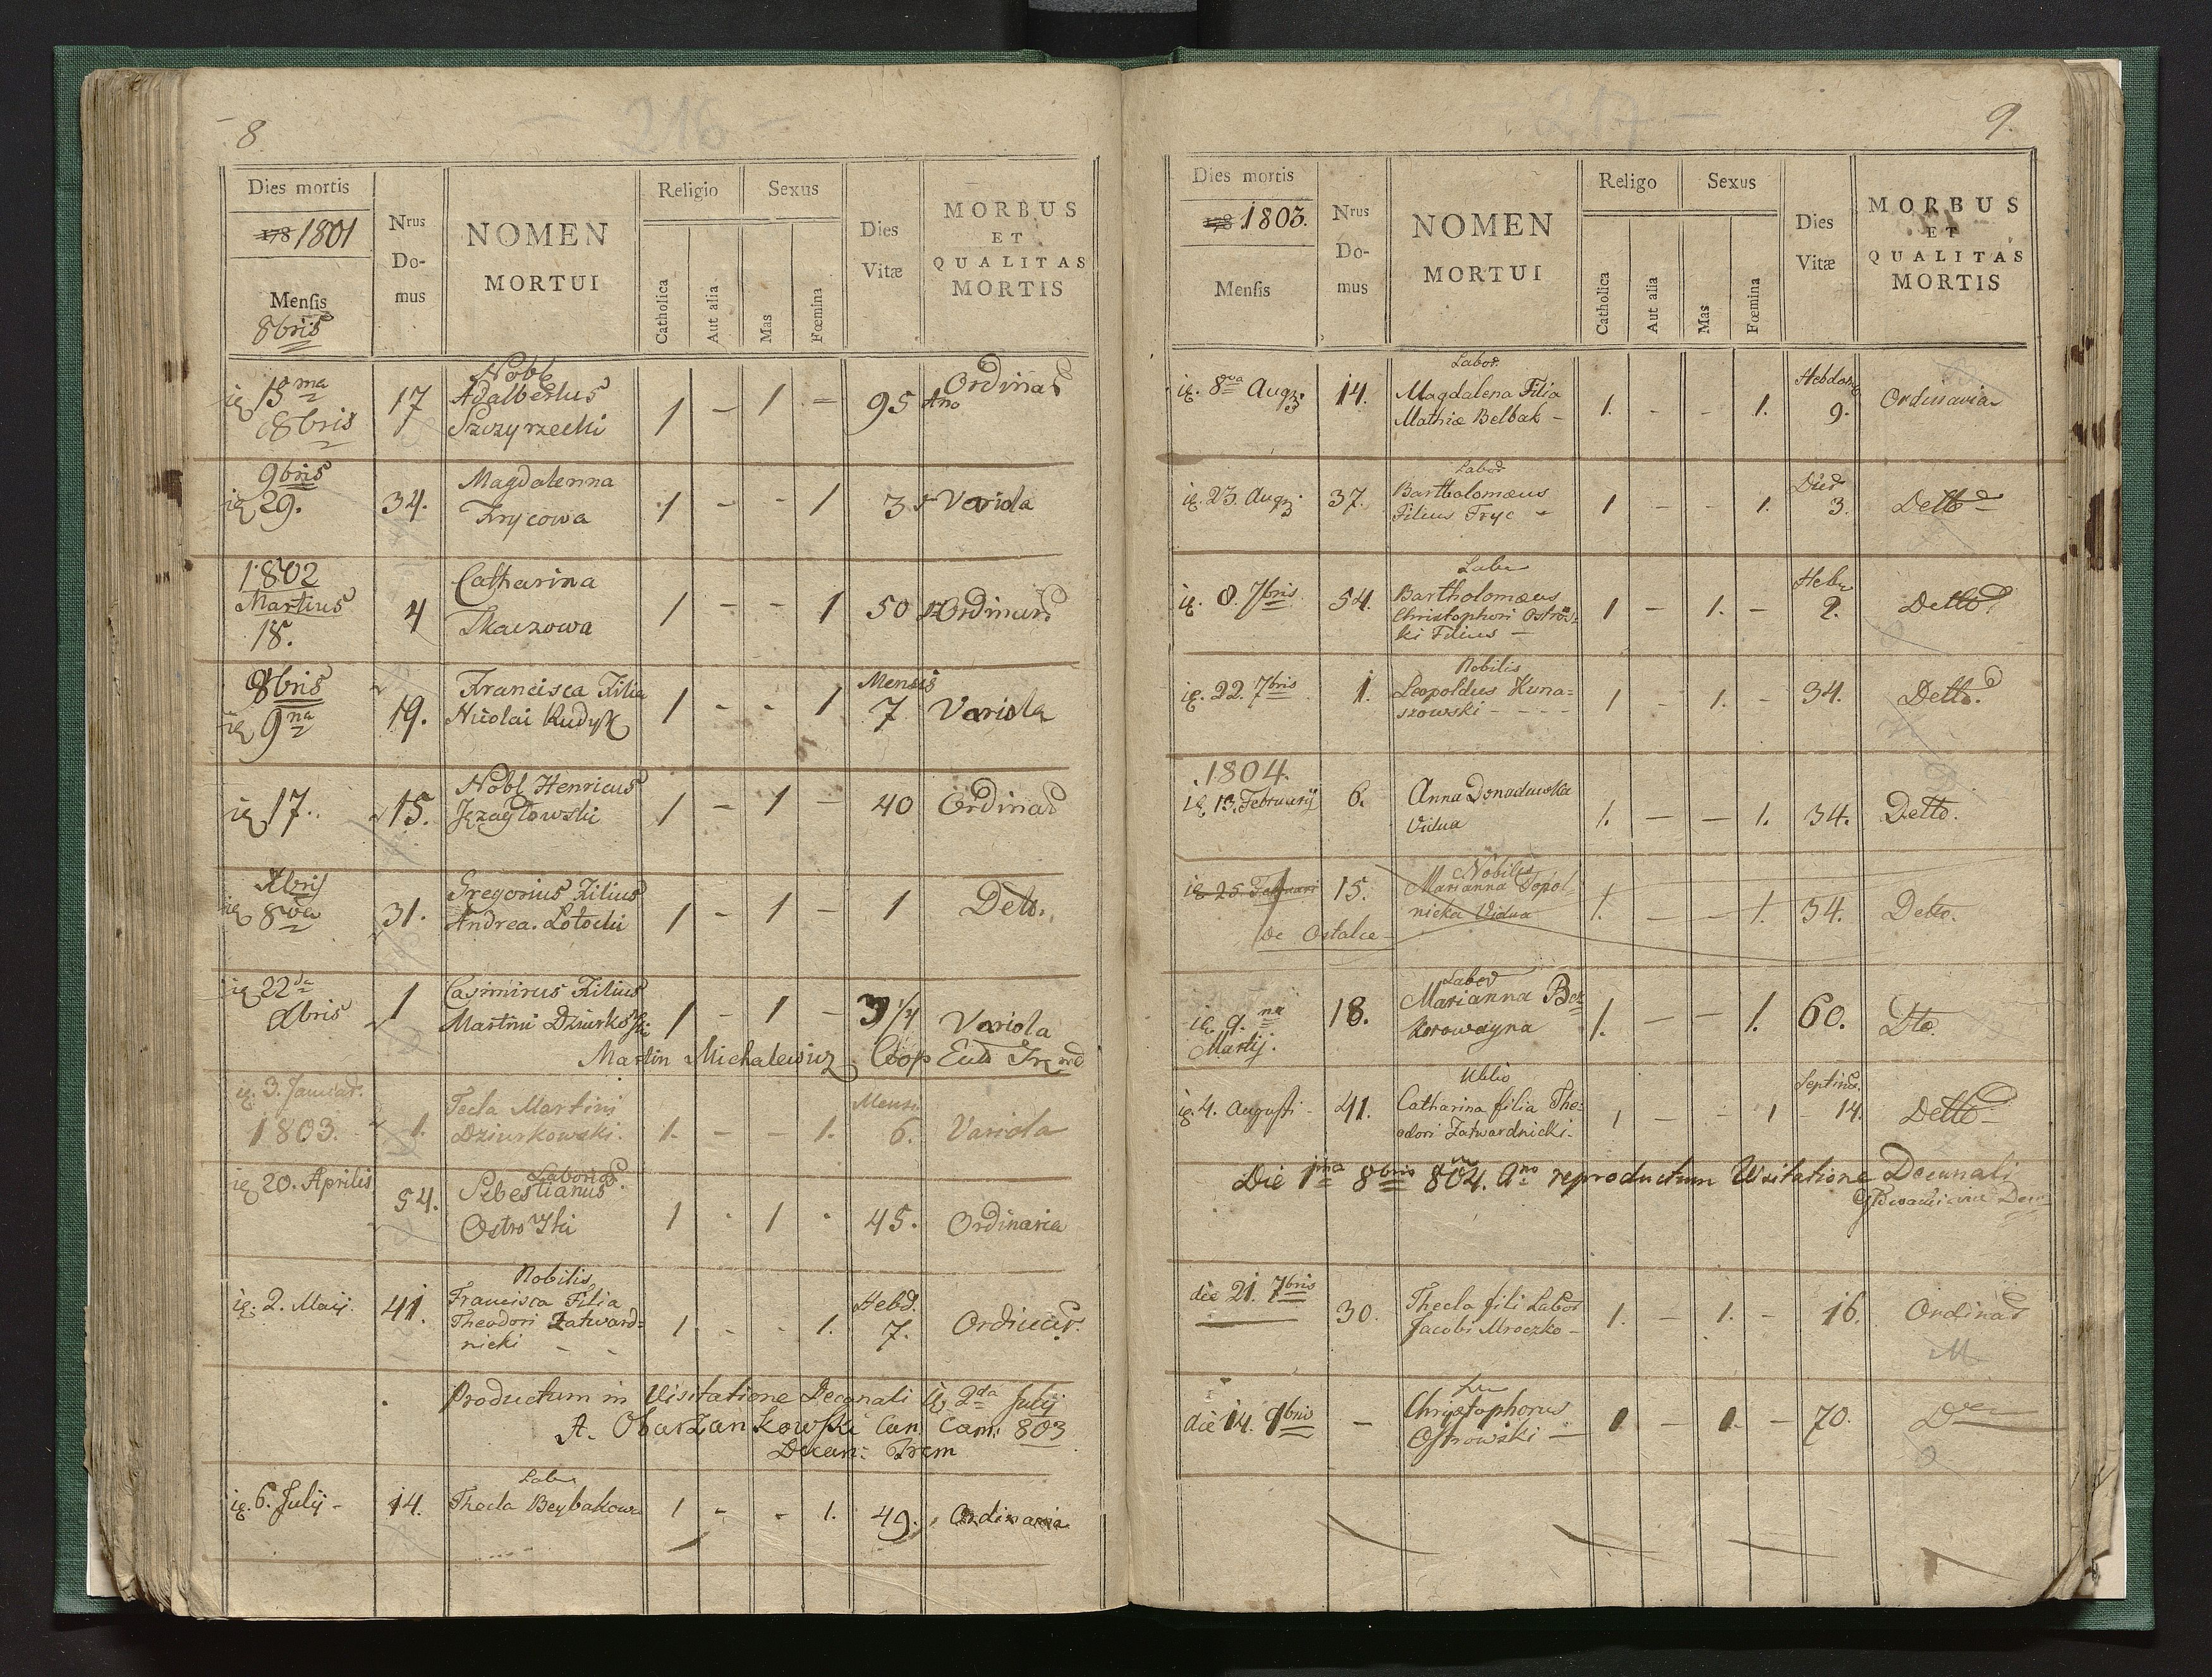 8
216
Dies mortis
178 1801
Mensis
8bris
Nrus
Do-
mus
NOMEN
MORTUI
Religio
Catholica
Aut alia
Sexus
Mas
Fœmina
Dies
Vitæ
MORBUS
ET
QUALITAS
MORTIS
13ma
8bris
17
Nobl
Adalbertus
Szczyrzecki
1 - 1 -
95
Ordinar
9bris
29.
34.
Magdalenna
Frycowa
1 - - 1
3
Variola
1802
Martius
18.
4
Catharina
Tkaczowa
1 - - 1
50
8bris
9na
19.
Francisca Filia
Nicolai Rudyk
1 - - 1
Mensis
7
Variola
17.
15.
Nobl Henricus
1 - 1 -
40
Ordinar
Xbris
8va
31.
Gregorius Filius
Andrea. Lotocki
1 - 1 -
1
Detto.
22da
Xbris
1
Casimirus Filius
Martini
1 - 1 -
Variola
Martin Michalewicz Coop
3. Januar.
1803.
1.
Tecla Martini
Dziurkowski.
1. - - 1.
Mens
6.
Variola
20. Aprilis
54.
Laborios.
Sebestianus
Ostroski
1 - 1 -
45.
Ordinaria
2. Maij.
41.
Nobilis
Francisca Filia
Theodori Zatward=
nicki - -
1 - - 1.
Hebd.
7.
Ordinar.
Productum in Visitatione Decanali 2da Julij
A. Obarzankowski Can. Cam: 803
Decan:
6. Julij -
14.
Labor
Thecla Beybakowa
1 - - 1.
49.
Ordinaria
9.
217
Dies mortis
178 1803.
Mensis
Nrus
Do-
mus
NOMEN
MORTUI
Religo
Catholica
Aut alia
Sexus
Mas
Fœmina
Dies
Vitæ
MORBUS
ET
QUALITAS
MORTIS
8va Aug
14.
Labor.
Magdalena Filia
Mathiæ Belbak -
1. - - 1.
9.
Ordinaria
23. Aug
37.
Labor
Bartholomæus
Filius Fryc -
1 - - 1.
Dier
3.
Detto
8. 7bris
54.
Bartholomæus
Christophori Ostrow=
ski Filius -
1 - 1. -
2.
Detto
22. 7bris
1.
Nobilis
Leopoldus Kuna=
szowski - - - -
1 - 1. -
34.
Detto.
1804.
13. Februarij
6.
Anna
Vidua
1. - - 1.
34.
Detto.
25
15.
Nobilis
Marianna Topol
nicka Vidua
de Ostalce
1. - - 1.
54.
Detto.
9.na
Martij.
18.
Labor
Marianna
1. - - 1.
60.
Dto.
4. Augusti -
41.
Catharina filia The=
odori Zatwardnicki -
1 - - 1
14.
Detto -
Die 1ma 8bris 804. reproductum Visitatione Decanali
die 21. 7bris
30.
Thecla fili Labor
Jacobi Mroczko -
1. - 1. -
16.
Ordinar
die 14. 9bris
-
Chrystophorus
Ostrowski -
1 - 1. -
70.